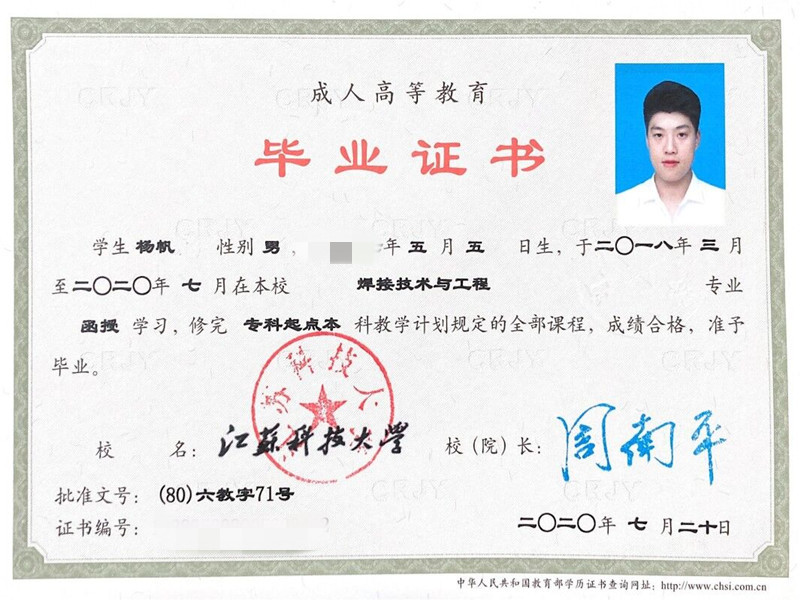 成人高等教育
毕业证书
学生 杨帆 性别 男， 年 五 月 五 日生，于二〇一八年 三 月
至二〇二〇年 七 月在本校 焊接技术与工程 专业
函授 学习，修完 专科起点本 科教学计划规定的全部课程，成绩合格，准予
毕业。
校 名：江苏科技大学 校（院）长：周南平
批准文号：(80)六教字71号
证书编号：
二〇二〇年 七 月二十日
中华人民共和国教育部学历证书查询网址：http://www.chsi.com.cn